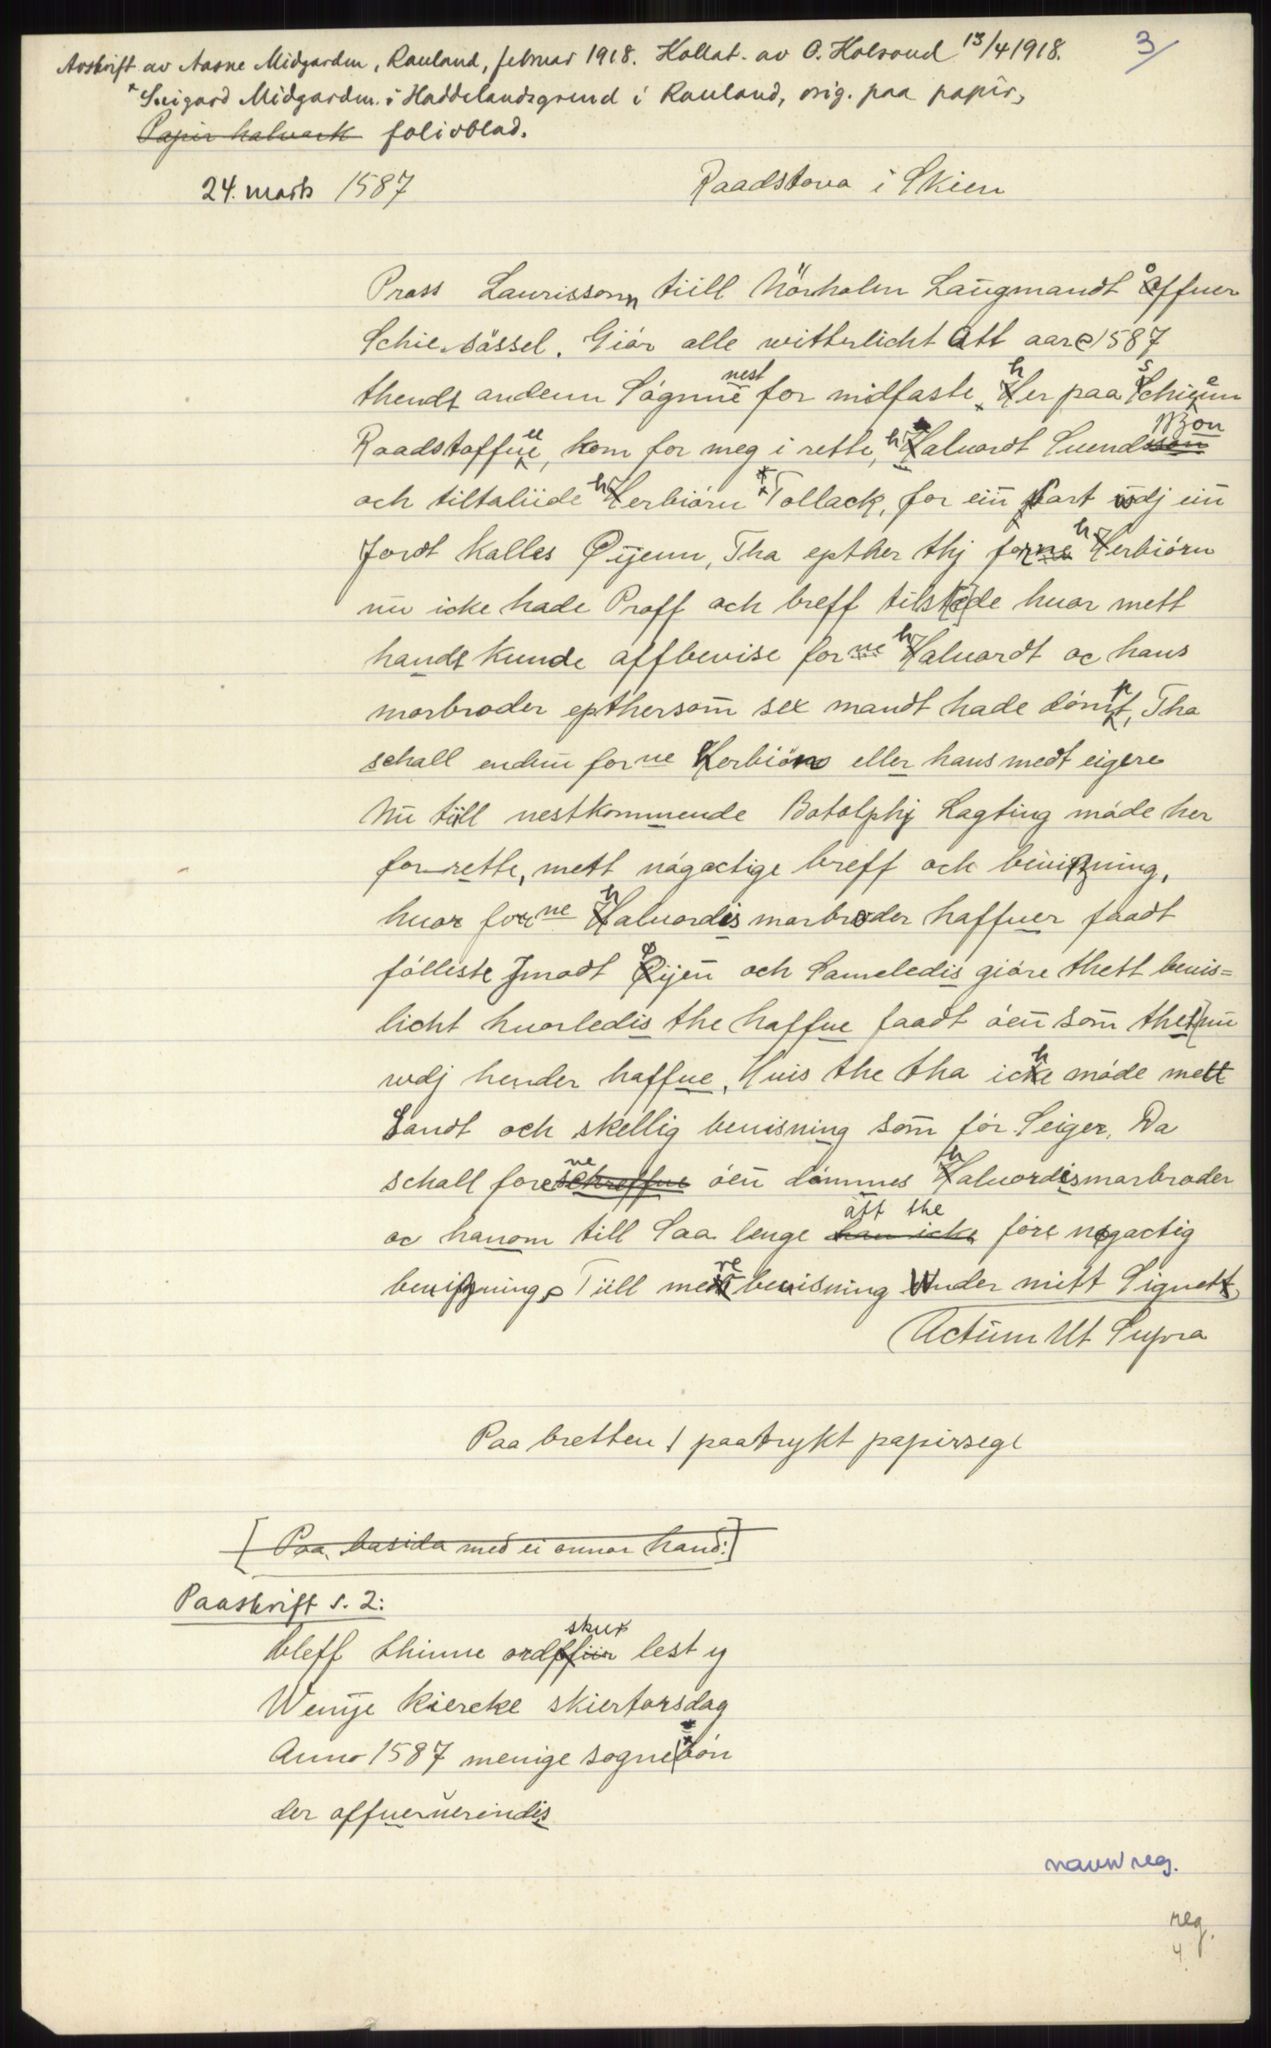 Avskrift av Aasne Midgarden, Rauland, februar 1918. Kollat. av O. Kolsrud 13/4 1918.
3/
Sigard Midgarden i Haddelandsgrend i Rauland, orig. paa papir,
Papir halvark folioblad.
24. marts 1587
Raadstova i Skien
Pross Laurissonn tiill Nörholm Laugmandt åffuer
Schiesössel. Giór alle witterlicht Att aare 1587
thendt andenn Sógnne nest for midfaste, her paa Schieenn
Raadstoffuee, kom for meg i rette, haluordt Suendszon
och tiltaliide herbiórn Tollack, for ein part wdj ein
Jordt kalles Øÿenn, Tha epther thj forne herbiórn
nu icke hade Proff och breff tilst[e]de huor mett
handt kunde affbevise forne haluordt oc hans
morbroder epthersom sex mandt hade dómpt, Tha
schall endnu forne Herbiörn eller hans medt eigere
Nu tiill nestkommende Botolphj Lagting móde her
for rette, mett nógactige breff och beuiszning,
huor forne haluordis morbroder haffuer faadt
fólliste Jmodt Øijen och Sameledis gióre thett beuis=
licht huorledis the haffue faadt óen som thet nu
wdj hender haffue, Huis the tha icke móde mett
Sandt och skellig beuisning som fór Seiger, Da
schall forne óen dómmes haluordismorbroder
oc hanom till Saa lenge att the fóre nogactig
beuiszning, Tiill mere beuisning Under mitt Signett
Actum Ut Supra
Paa bretten 1 paatrykt papirsegl
[Paa basida med ei annor hand:]
Paaskrift s. 2:
bleff thinne ordskur lest y
Wenÿe kiercke skiertorsdag
Anno 1587 menige sognebón
der offueruerindis
navnreg.
reg.
4